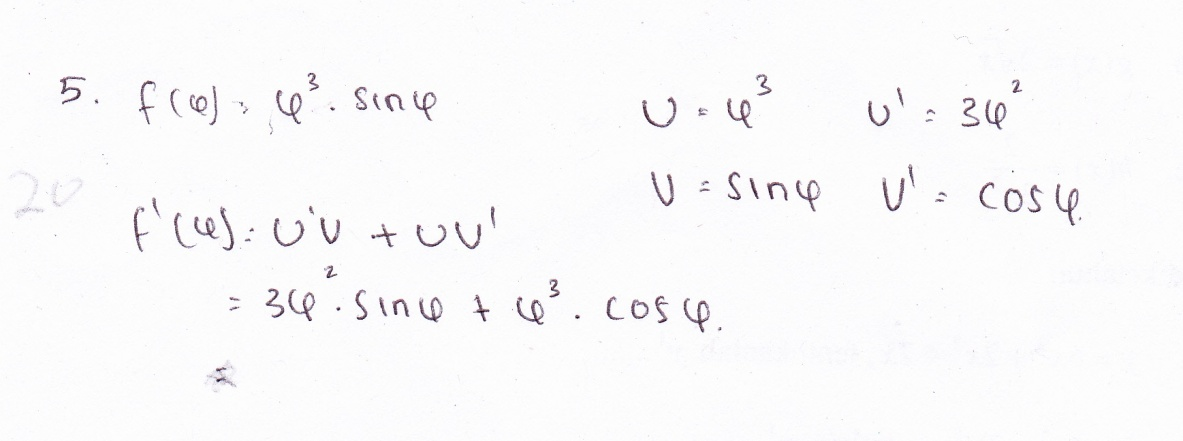 5. f(φ) = φ³ . sin φ
U = φ³ U' = 3φ²
V = sin φ V' = cos φ.
20
f'(φ) = U'V + UV'
= 3φ² . sin φ + φ³ . cos φ.
=